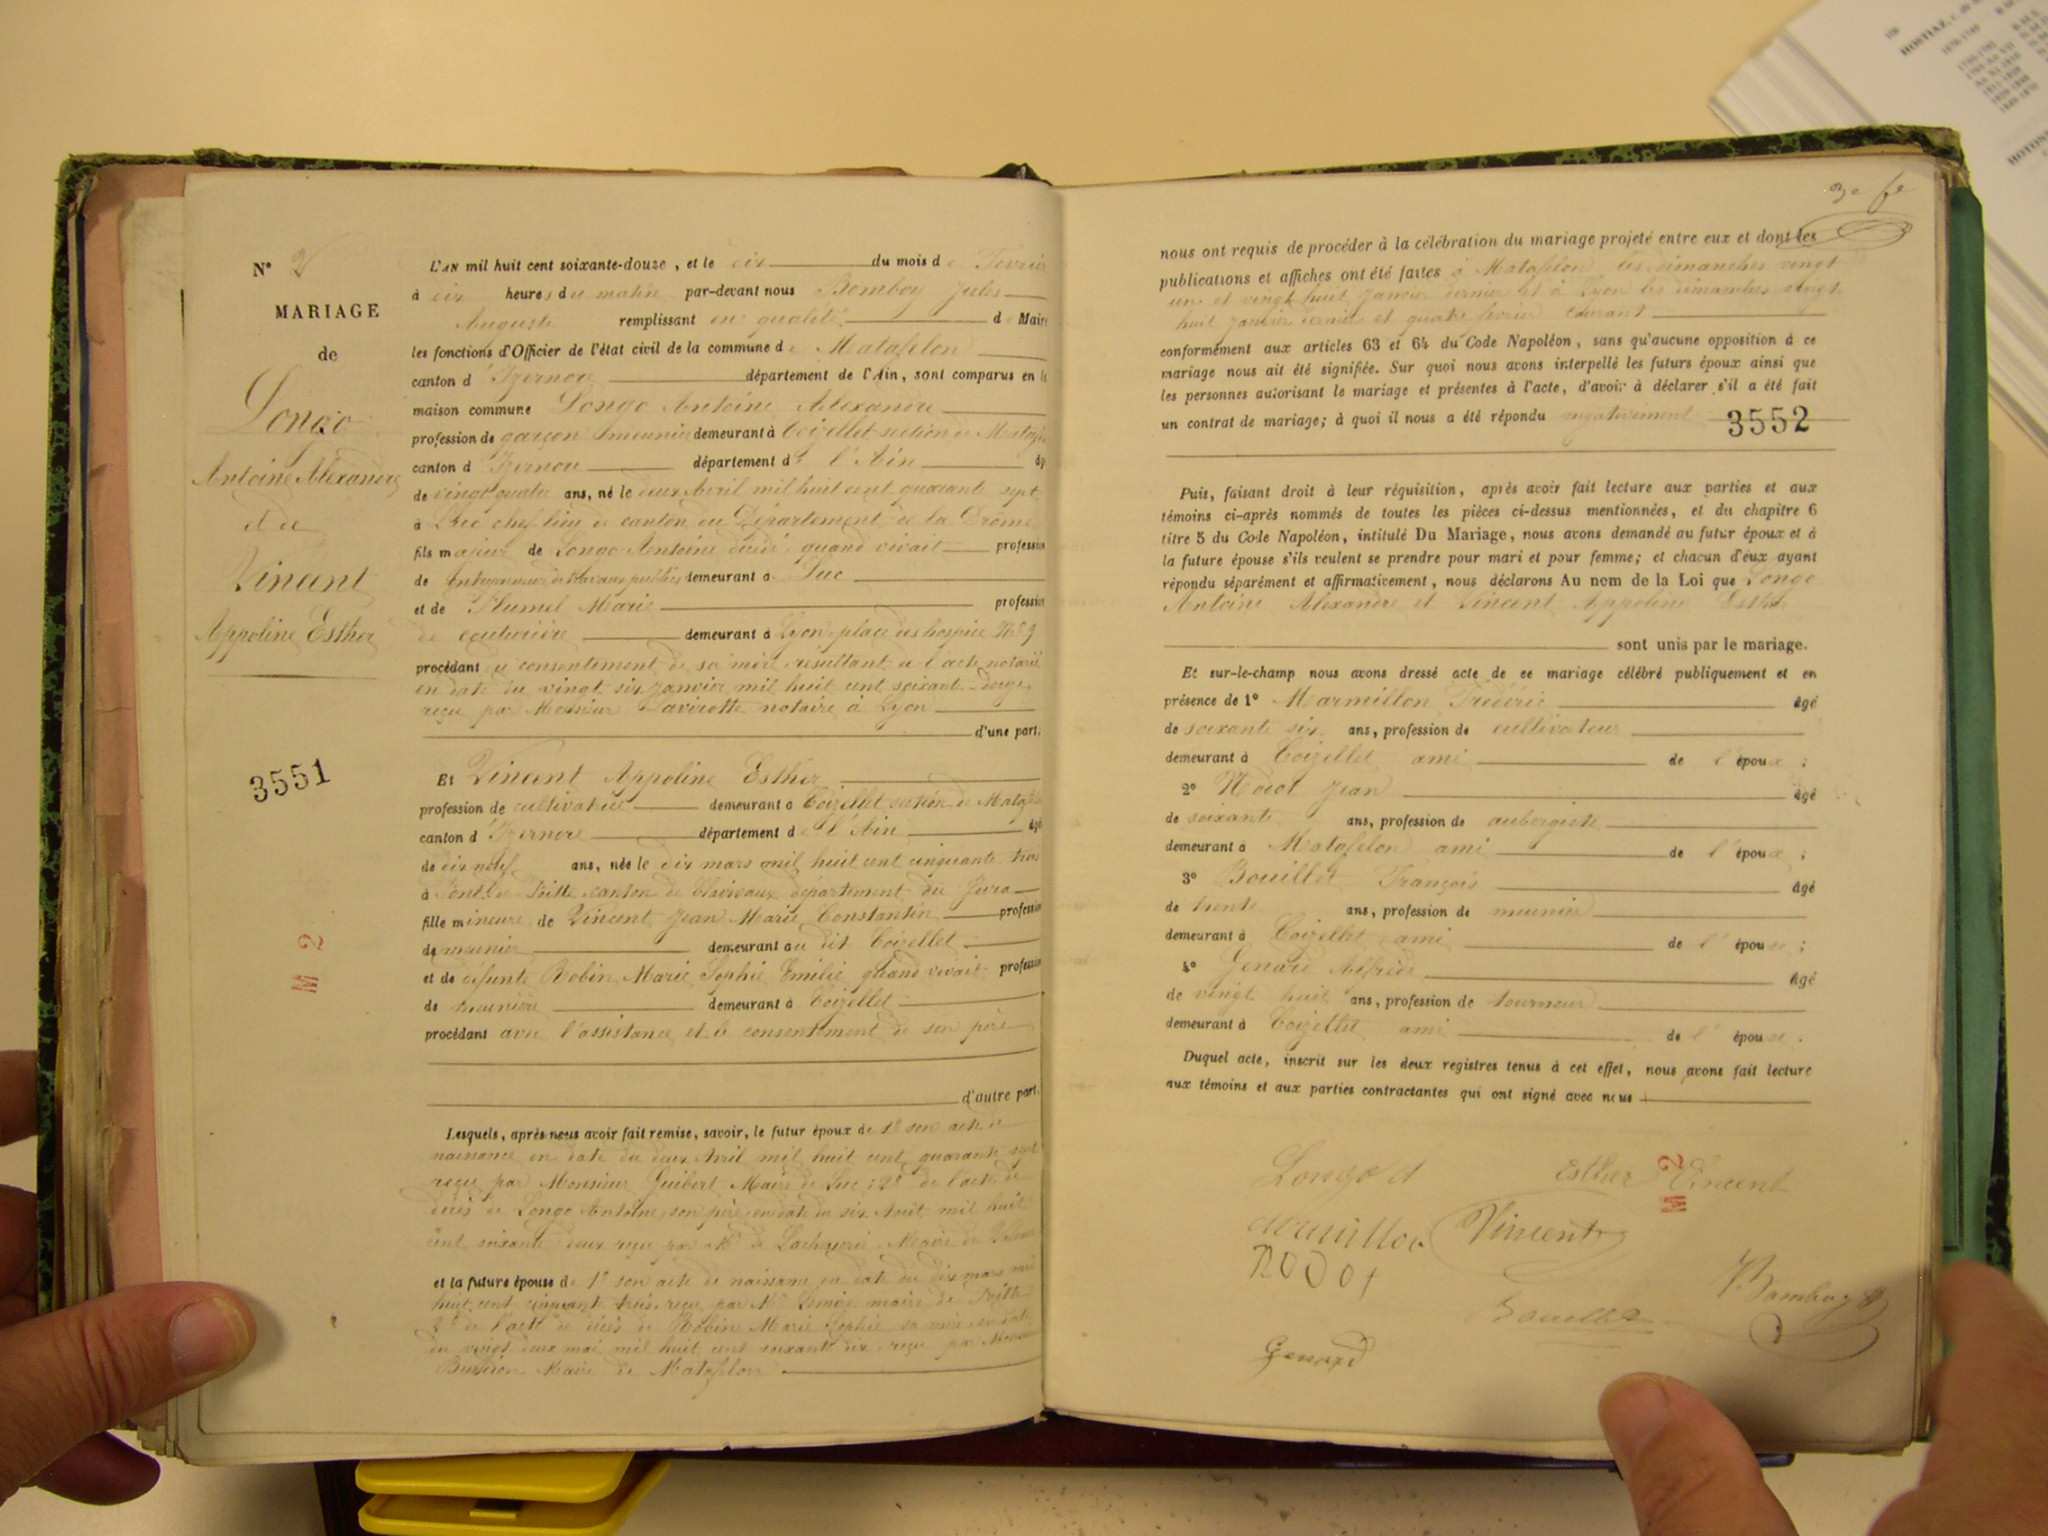 N° 2
MARIAGE
de
Longo
Antoine Alexandre
et de
Vincent
Appoline Esther
3551
M 2
L'AN mil huit cent soixante-douze, et le dix du mois de Février
à dix heures du matin par-devant nous Bomboy Jules
Auguste remplissant en qualité de Maire
les fonctions d'Officier de l'état civil de la commune de Matafelon
canton d'Izernore département de l'Ain, sont comparus en la
maison commune Longo Antoine Alexandre
profession de garçon meunier demeurant à Coizellet section de Matafelon
canton d'Izernore département de l'Ain âgé
de vingt quatre ans, né le deux Avril mil huit cent quarante sept
à Luc chef lieu de canton du Département de la Drome
fils majeur de Longo Antoine décédé quand vivait profession
de Entrepreneur de travaux publics demeurant à Luc
et de Plumel Marie profession
de couturière demeurant à Lyon place des hospice N° 9
procédant du consentement de sa mère résultant de l'acte notarié
en date du vingt six janvier mil huit cent soixante douze
reçu par Monsieur Lavirotte notaire à Lyon
d'une part.
Et Vincent Appoline Esther
profession de cultivatrice demeurant à Coizellet section de Matafelon
canton d'Izernore département de l'Ain âgé
de dix neuf ans, née le dix mars mil huit cent cinquante trois
à Pont de Poitte canton de Clairvaux département du Jura
fille mineure de Vincent Jean Marie Constantin profession
de meunier demeurant au dit Coizellet
et de défunte Robin Marie Sophie Emilie quand vivait profession
de meunière demeurant à Coizellet
procédant avec l'assistance et le consentement de son père
d'autre part.
Lesquels, après nous avoir fait remise, savoir, le futur époux de 1° son acte de
naissance en date du deux Avril mil huit cent quarante sept
reçu par Monsieur Guibert Maire de Luc; 2° de l'acte de
décès de Longo Antoine son père en date du six Août mil huit
cent soixante deux reçu par Mr de Maire de
et la future épouse de 1° son acte de naissance en date du dix mars mil
huit cent cinquante trois reçu par Mr maire de Poitte
2° de l'acte de décès de Robin Marie Sophie sa mère en date
du vingt deux mai mil huit cent soixante dix reçu par Monsieur
Maire de Matafelon
nous ont requis de procéder à la célébration du mariage projeté entre eux et dont les
publications et affiches ont été faites à Matafelon les dimanches vingt
un et vingt huit janvier dernier et à Lyon les dimanches vingt
huit janvier dernier et quatre février courant
conformément aux articles 63 et 64 du Code Napoléon, sans qu'aucune opposition à ce
mariage nous ait été signifiée. Sur quoi nous avons interpellé les futurs époux ainsi que
les personnes autorisant le mariage et présentes à l'acte, d'avoir à déclarer s'il a été fait
un contrat de mariage; à quoi il nous a été répondu négativement
3552
Puis, faisant droit à leur réquisition, après avoir fait lecture aux parties et aux
témoins ci-après nommés de toutes les pièces ci-dessus mentionnées, et du chapitre 6
titre 5 du Code Napoléon, intitulé Du Mariage, nous avons demandé au futur époux et à
la future épouse s'ils veulent se prendre pour mari et pour femme; et chacun d'eux ayant
répondu séparément et affirmativement, nous déclarons Au nom de la Loi que Longo
Antoine Alexandre et Vincent Appoline Esther
sont unis par le mariage.
Et sur-le-champ nous avons dressé acte de ce mariage célébré publiquement et en
présence de 1° Marmillon Frédéric âgé
de soixante six ans, profession de cultivateur
demeurant à Coizellet ami de l'époux;
2° Nodot Jean âgé
de soixante ans, profession de aubergiste
demeurant à Matafelon ami de l'époux;
3° Bouillet François âgé
de trente ans, profession de meunier
demeurant à Coizellet ami de l'épouse;
4° Genard Alfrède âgé
de vingt huit ans, profession de tourneur
demeurant à Coizellet ami de l'épouse.
Duquel acte, inscrit sur les deux registres tenus à cet effet, nous avons fait lecture
aux témoins et aux parties contractantes qui ont signé avec nous
Longo A
Esther Vincent
M 2
Vincent
nodot
Bouillet
Bomboy
Genard